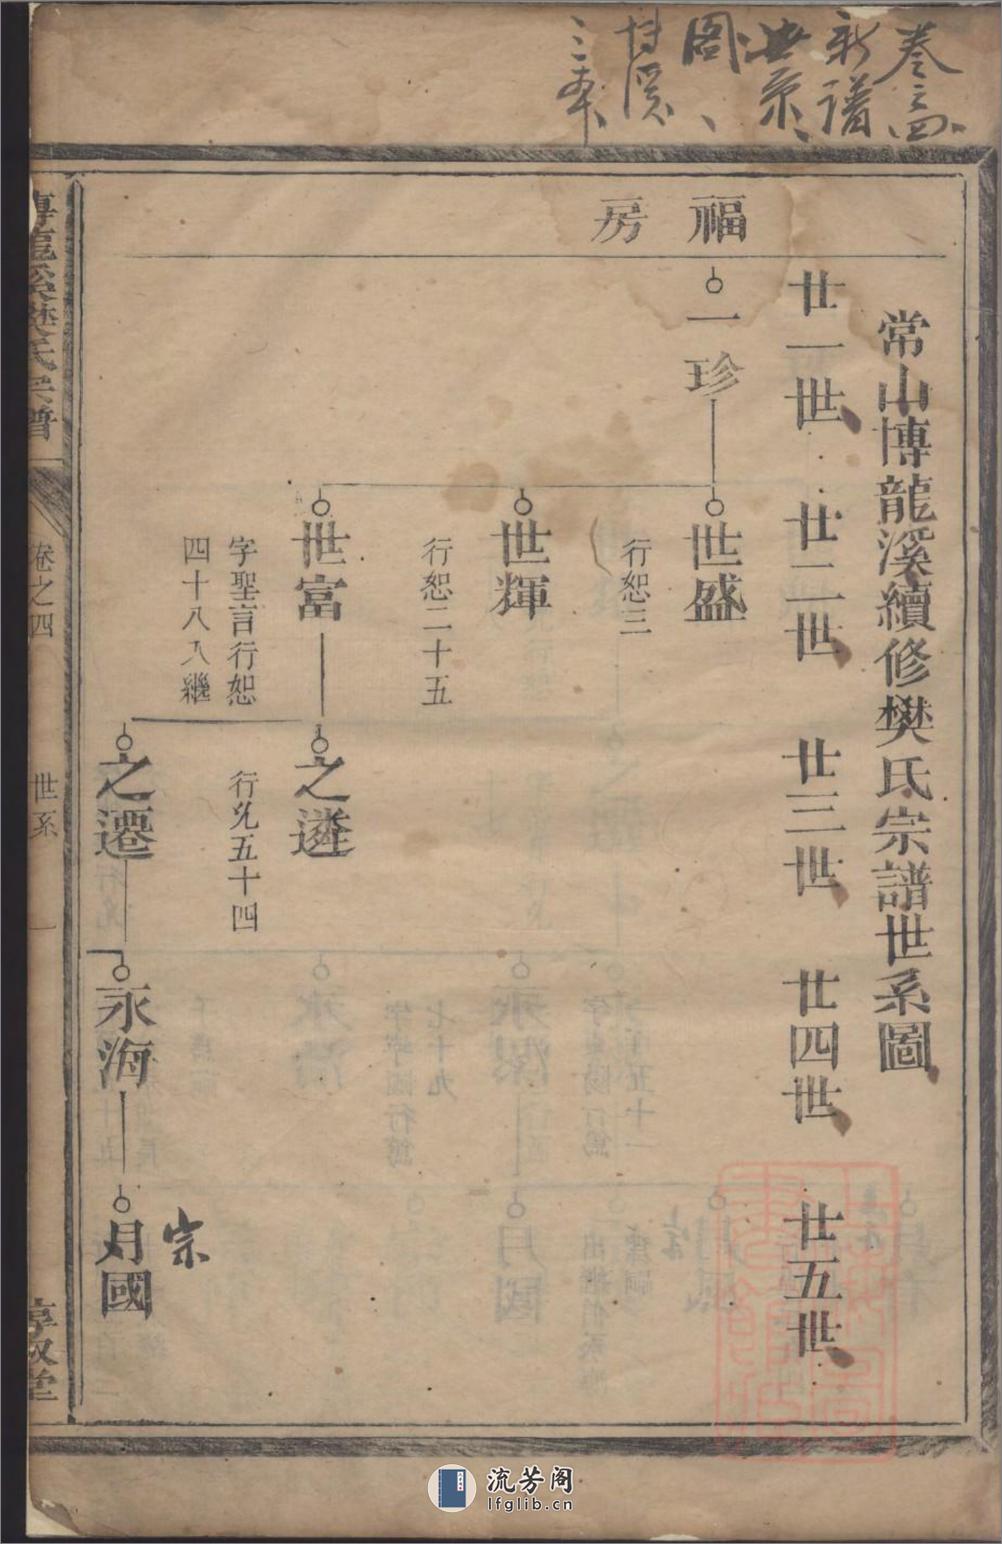 卷之四
新譜
世系
圖
博溪
三本
常山博龍溪續修樊氏宗譜世系圖
廿一世
廿二世
廿三世
廿四世
廿五世
福房
一珍
世盛
行恕三
世輝
行恕二十五
世富
字聖言行恕
四十八入繼
之遴
行允五十四
之遷
永海
月國
宗
博龍溪樊氏宗譜
卷之四
世系
一
流芳阁
lfglib.cn